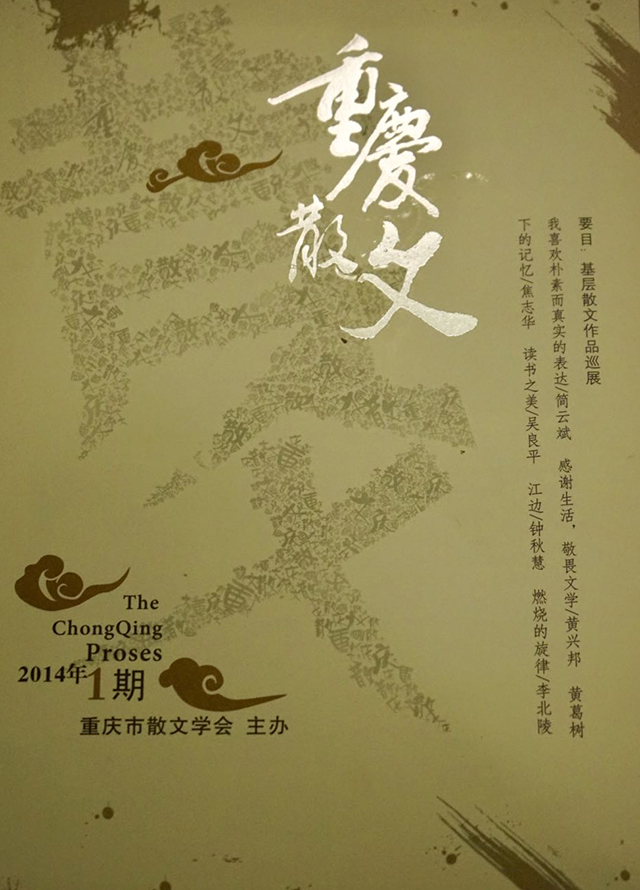 重慶
散文
要目：基层散文作品巡展
我喜欢朴素而真实的表达/简云斌 感谢生活，敬畏文学/黄兴邦 黄葛树
下的记忆/焦志华 读书之美/吴良平 江边/钟秋慧 燃烧的旋律/李北陵
The
ChongQing
Proses
2014年1期
重庆市散文学会 主办